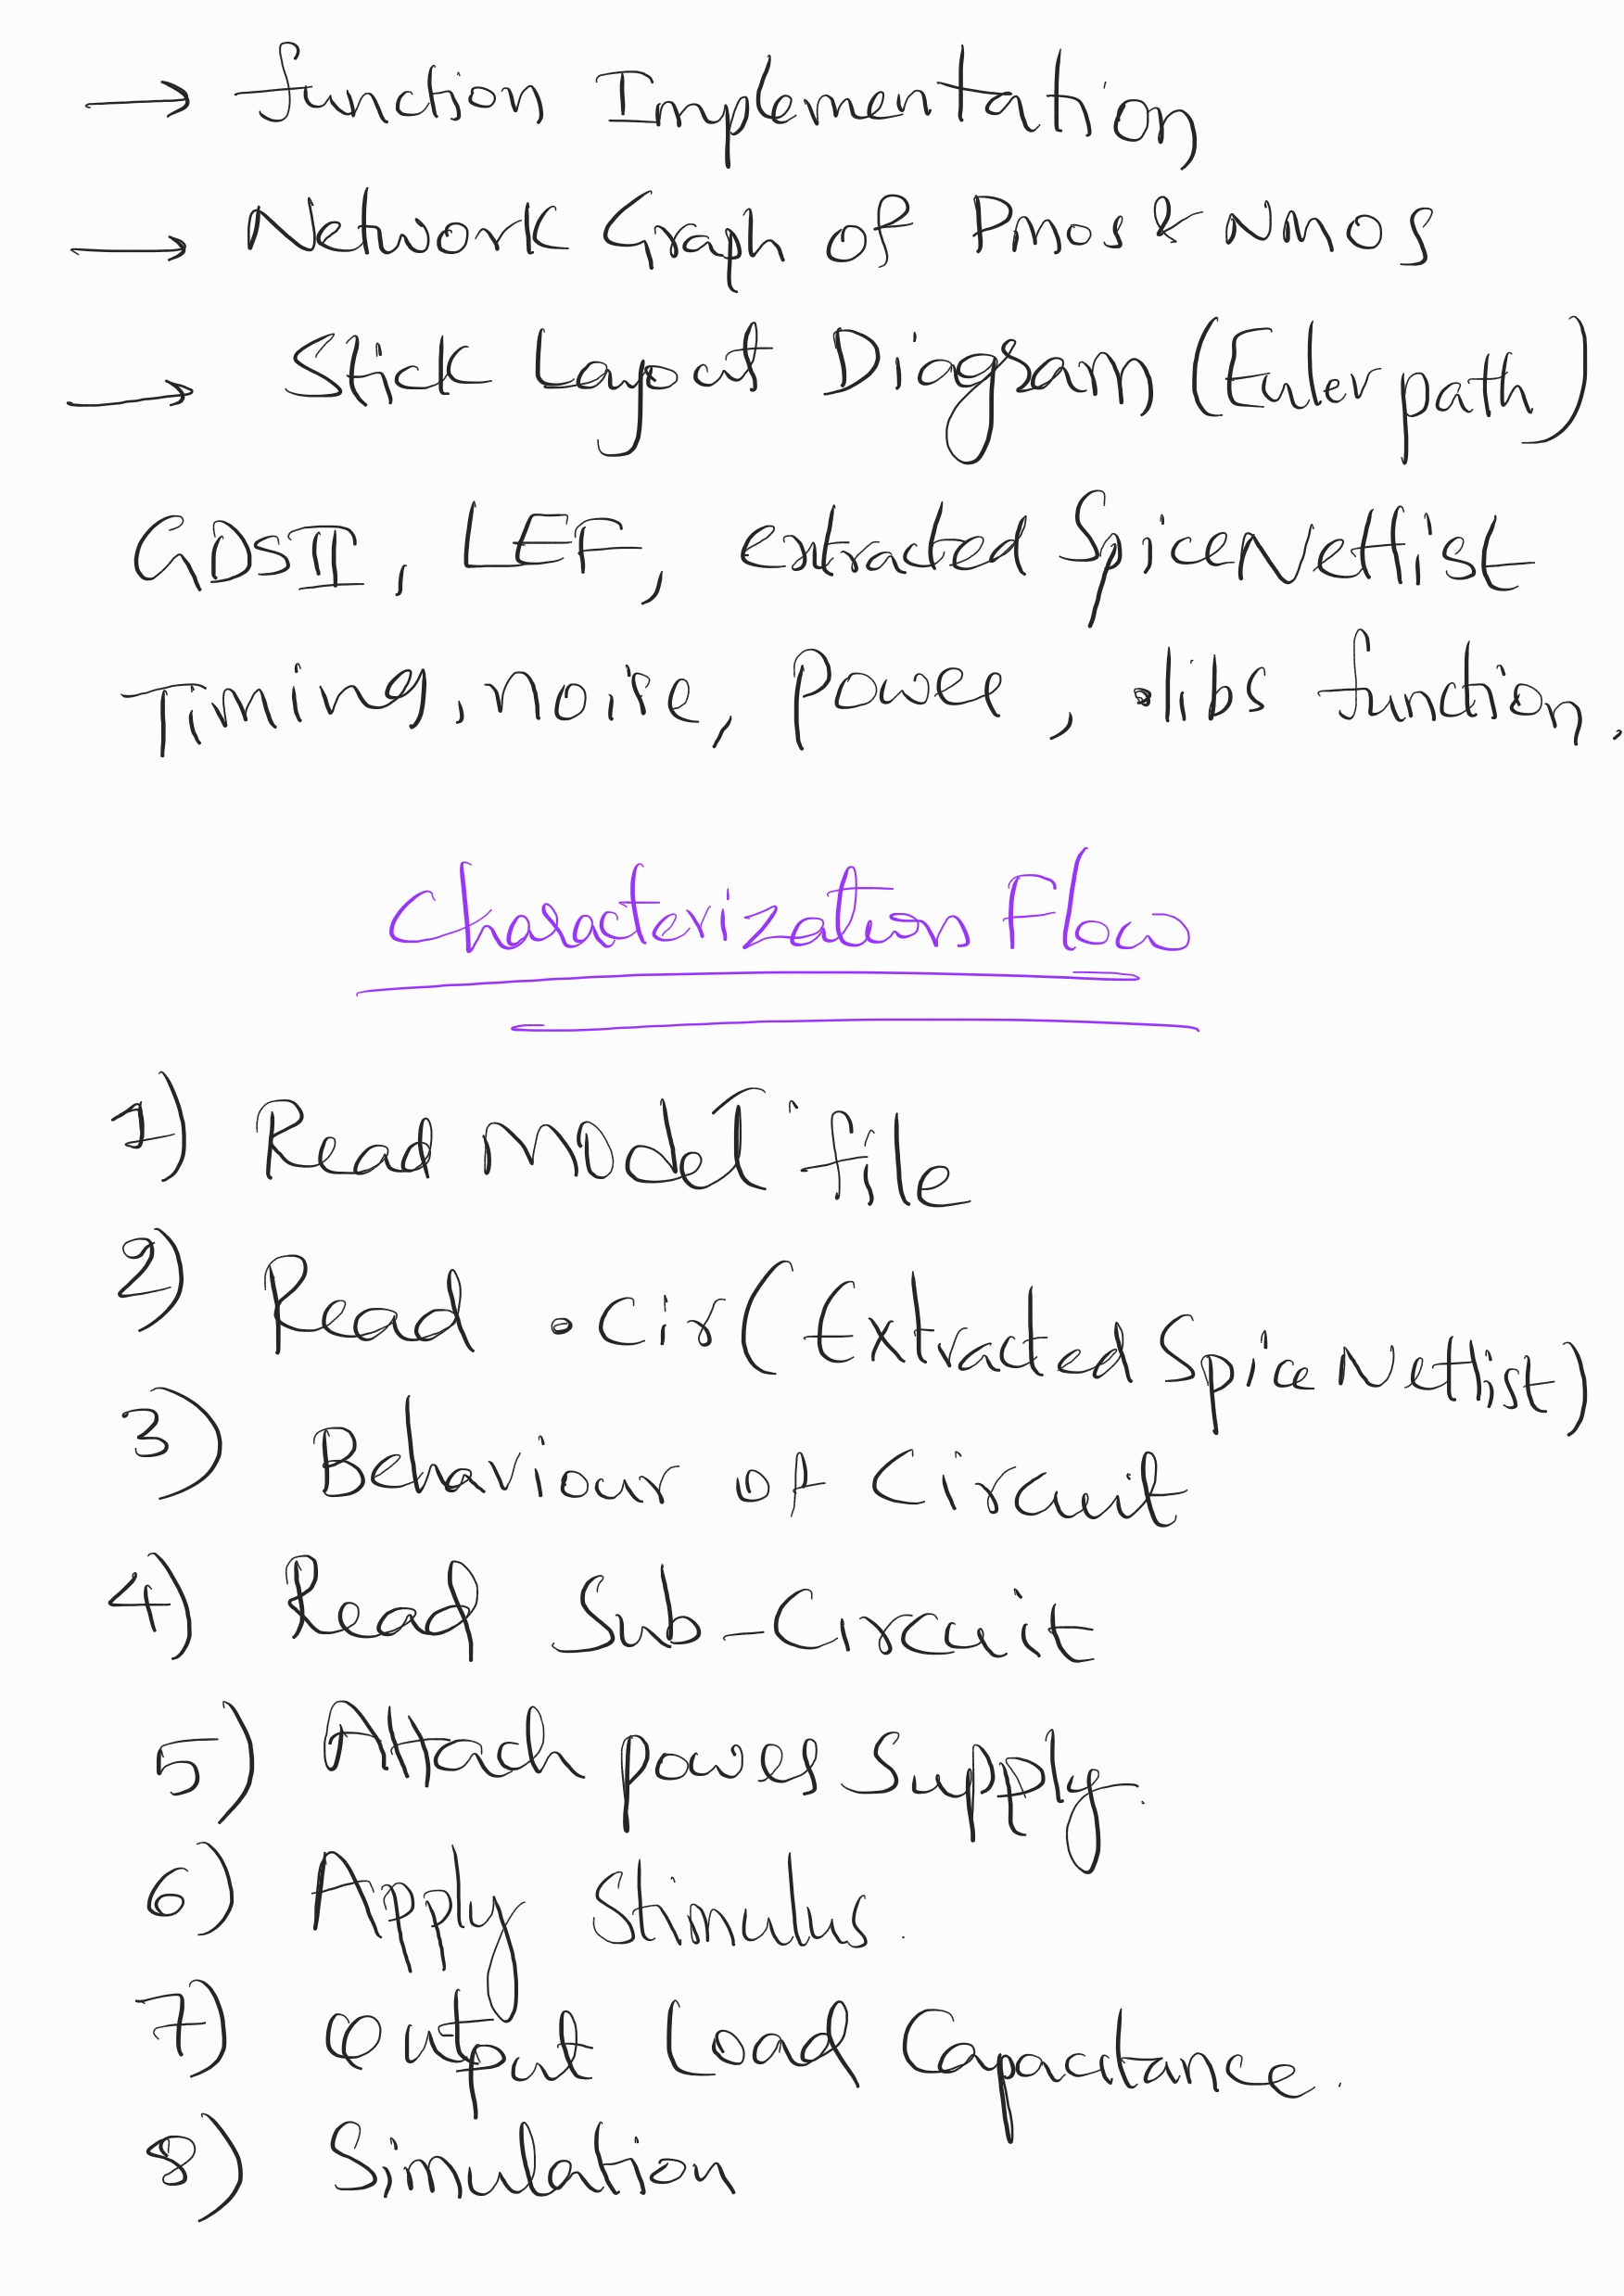 → function Implementation
→ Network Graph of Pmos & NMOS
→ Stick Layout Diagram (Euler path)
GDSII, LEF, extracted Spice Netlist
Timing, noise, power, .libs function,
Characterization Flow
1) Read Model file
2) Read .cir (Extracted Spice Netlist)
3) Behaviour of Circuit
4) Read Sub-Circuit
5) Attach power Supply.
6) Apply Stimulus.
7) Output Load Capacitance.
8) Simulation